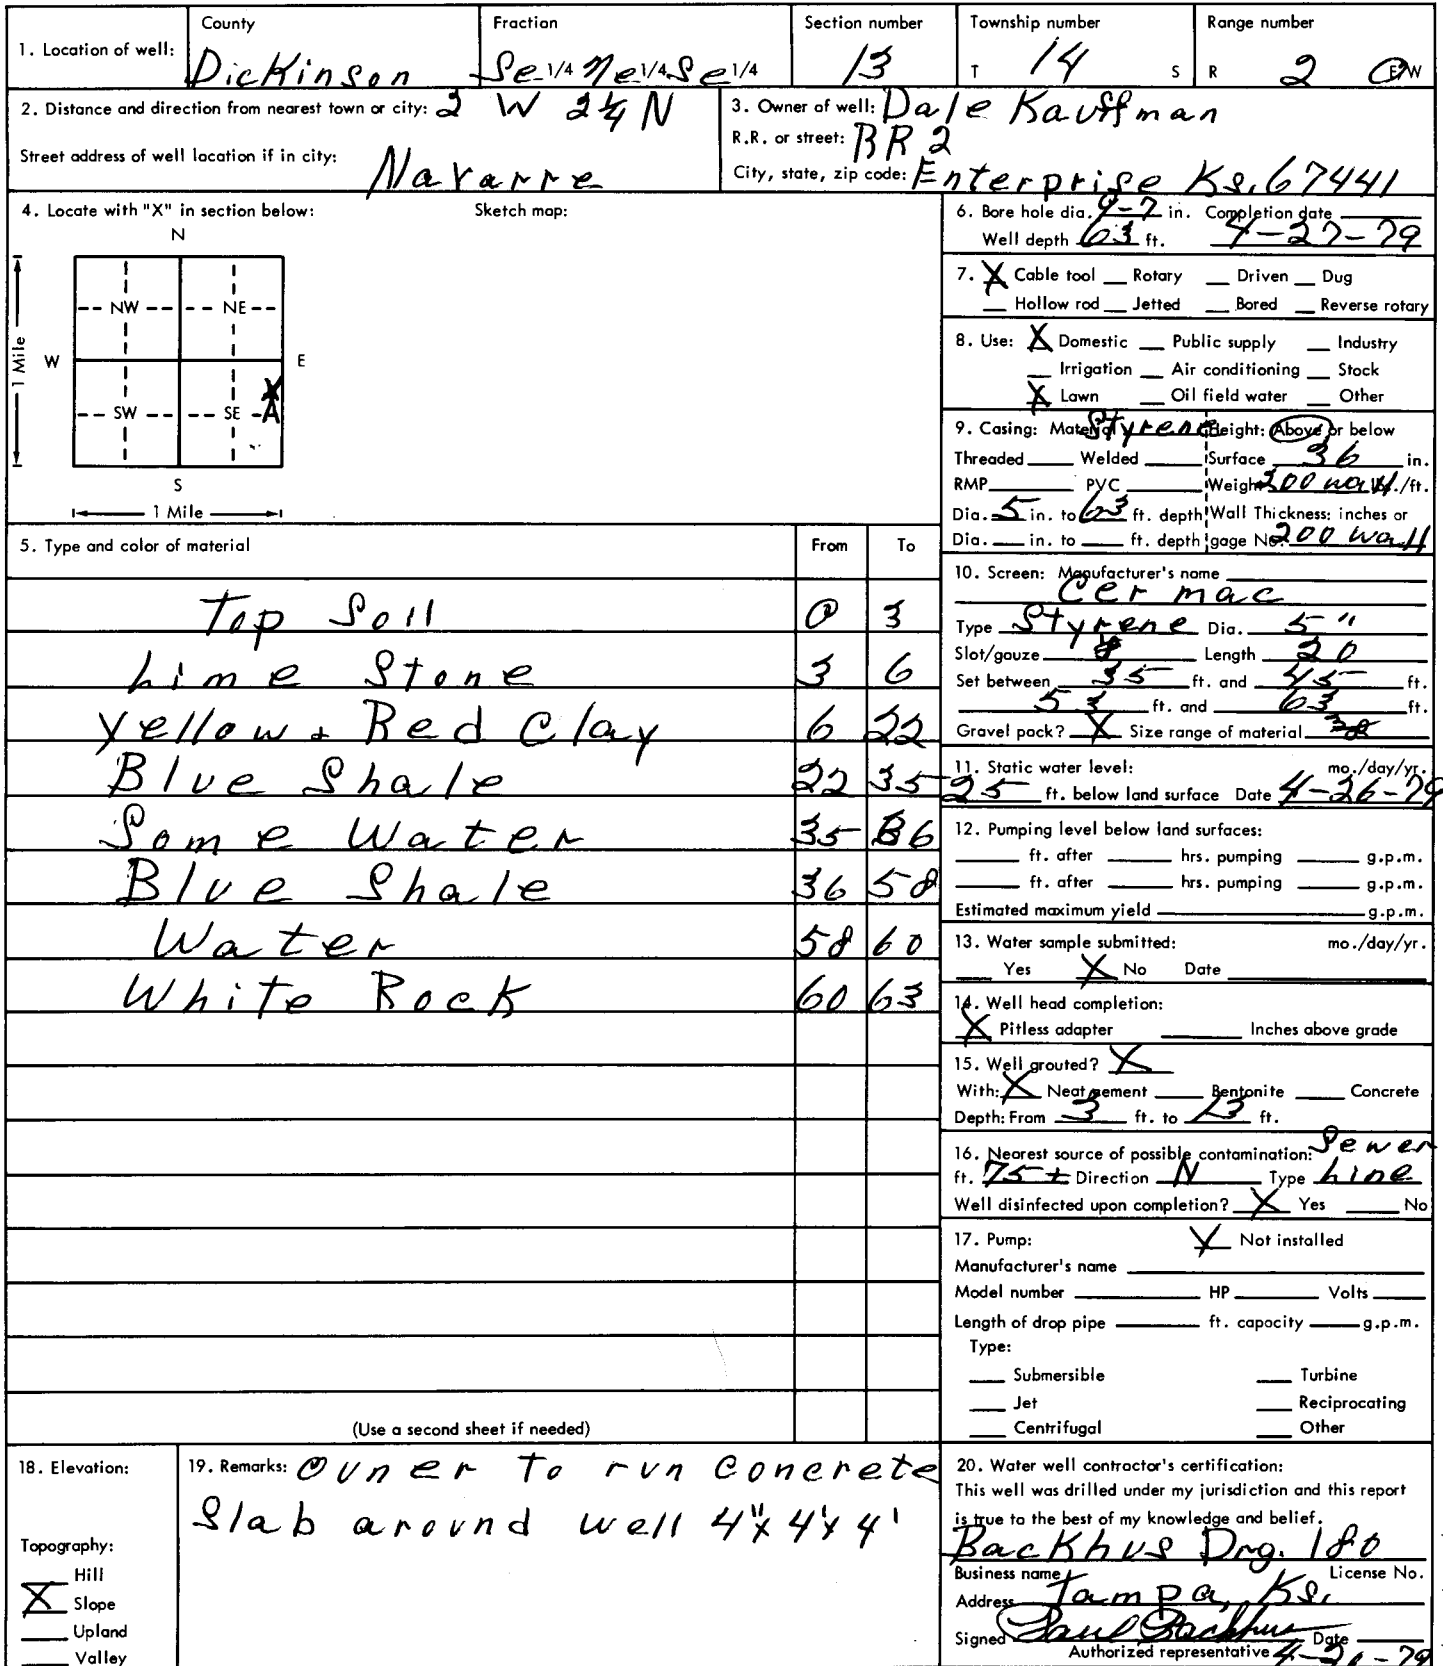 1. Location of well: County Dickinson Fraction Se 1/4 Ne 1/4 Se 1/4 Section number 13 Township number T 14 S Range number R 2 E/W
2. Distance and direction from nearest town or city: 2 W 2 1/4 N
Street address of well location if in city: Navarre
3. Owner of well: Dale Kauffman
R.R. or street: RR 2
City, state, zip code: Enterprise Ks. 67441
4. Locate with "X" in section below: Sketch map:
N
NW NE
W E
1 Mile
SW SE X
S
1 Mile
5. Type and color of material From To
Top Soil 0 3
Lime Stone 3 6
Yellow + Red Clay 6 22
Blue Shale 22 35
Some Water 35 36
Blue Shale 36 58
Water 58 60
White Rock 60 63
(Use a second sheet if needed)
6. Bore hole dia. 9-7 in. Completion date
Well depth 63 ft. 4-27-79
7. X Cable tool Rotary Driven Dug
Hollow rod Jetted Bored Reverse rotary
8. Use: X Domestic Public supply Industry
Irrigation Air conditioning Stock
X Lawn Oil field water Other
9. Casing: Material Styrene Height: Above or below
Threaded Welded Surface 36 in.
RMP PVC Weight 200 wall lbs./ft.
Dia. 5 in. to 63 ft. depth Wall Thickness: inches or
Dia. in. to ft. depth gage No. 200 wall
10. Screen: Manufacturer's name
Cer mac
Type Styrene Dia. 5"
Slot/gauze 8 Length 20
Set between 35 ft. and 45 ft.
53 ft. and 63 ft.
Gravel pack? X Size range of material
11. Static water level: mo./day/yr.
25 ft. below land surface Date 4-26-79
12. Pumping level below land surfaces:
ft. after hrs. pumping g.p.m.
ft. after hrs. pumping g.p.m.
Estimated maximum yield g.p.m.
13. Water sample submitted: mo./day/yr.
Yes X No Date
14. Well head completion:
X Pitless adapter Inches above grade
15. Well grouted? X
With: X Neat cement Bentonite Concrete
Depth: From 3 ft. to 13 ft.
16. Nearest source of possible contamination: Sewer
ft. 75 ± Direction N Type Line
Well disinfected upon completion? X Yes No
17. Pump: X Not installed
Manufacturer's name
Model number HP Volts
Length of drop pipe ft. capacity g.p.m.
Type:
Submersible Turbine
Jet Reciprocating
Centrifugal Other
18. Elevation:
Topography:
Hill
X Slope
Upland
Valley
19. Remarks: Owner to run concrete
Slab around well 4"x4'x4'
20. Water well contractor's certification:
This well was drilled under my jurisdiction and this report
is true to the best of my knowledge and belief.
Backhus Drg. 180
Business name License No.
Address Tampa, Ks.
Signed Paul Backhus Date
Authorized representative